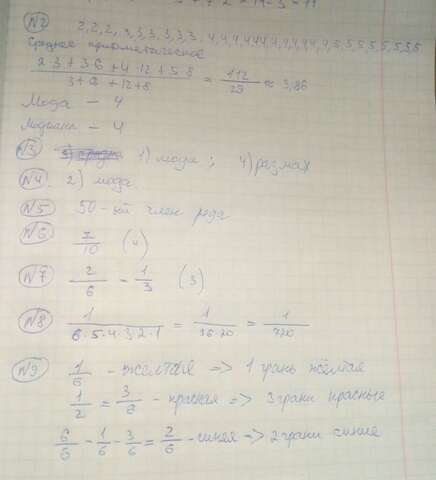 №2
2,2,2, 3,3,3,3,3,3, 4,4,4,4,4,4,4,4,4,4,4,4, 5,5,5,5,5,5,5,5
Среднее арифметическое
2·3 + 3·6 + 4·12 + 5·8 / 3+6+12+8 = 112/29 ≈ 3,86
Мода – 4
Медиана – 4
№3 1) мода; 4) размах
№4 2) мода
№5 50-ый член ряда
№6 7/10 (4)
№7 2/6 = 1/3 (3)
№8 1/6·5·4·3·2·1 = 1/36·20 = 1/720
№9 1/6 - жёлтая => 1 грань жёлтая
1/2 = 3/6 - красная => 3 грани красные
6/6 - 1/6 - 3/6 = 2/6 - синяя => 2 грани синие